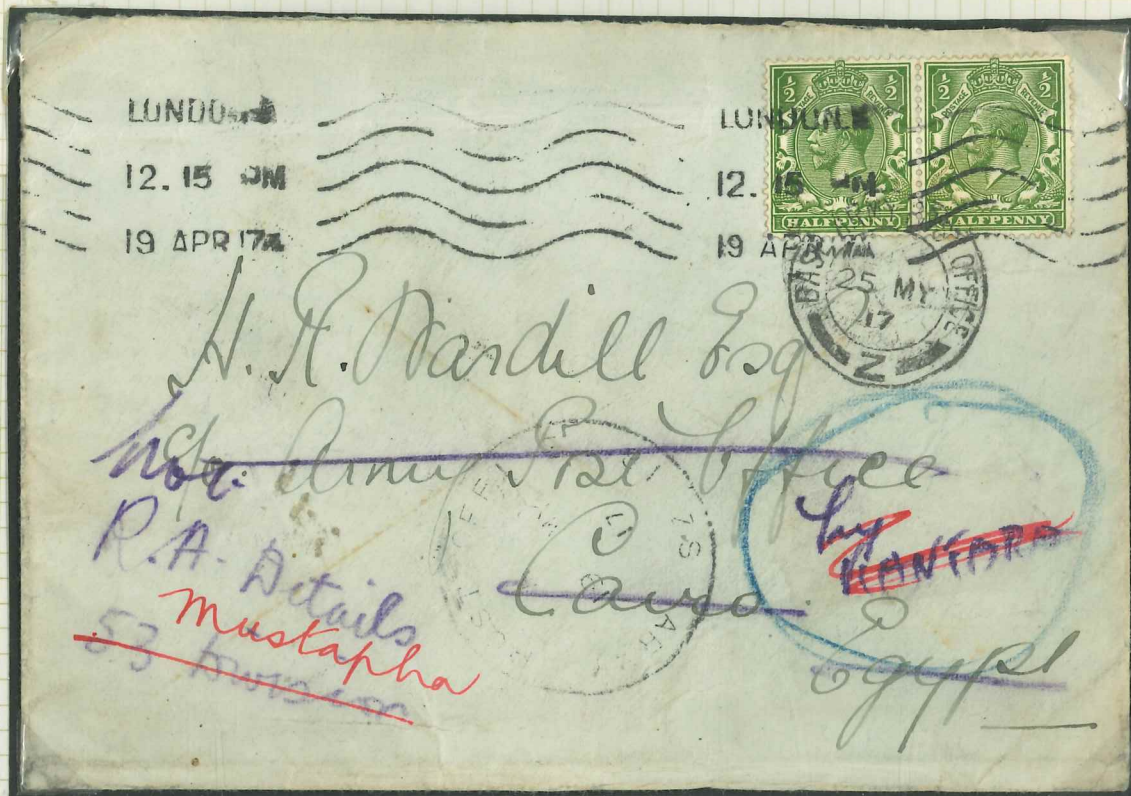 LONDON
12. 15 PM
19 APR 17
LONDON.E
12. 15 PM
19 APR
1/2 POSTAGE REVENUE 1/2
HALFPENNY
1/2 POSTAGE REVENUE 1/2
HALFPENNY
BASE OFFICE
25 MY
17
Z
H. R. Wardill Esq
c/o Army Post Office
Cairo
Egypt
R.A. Details
Mustapha
53 Division
by
KANTARA